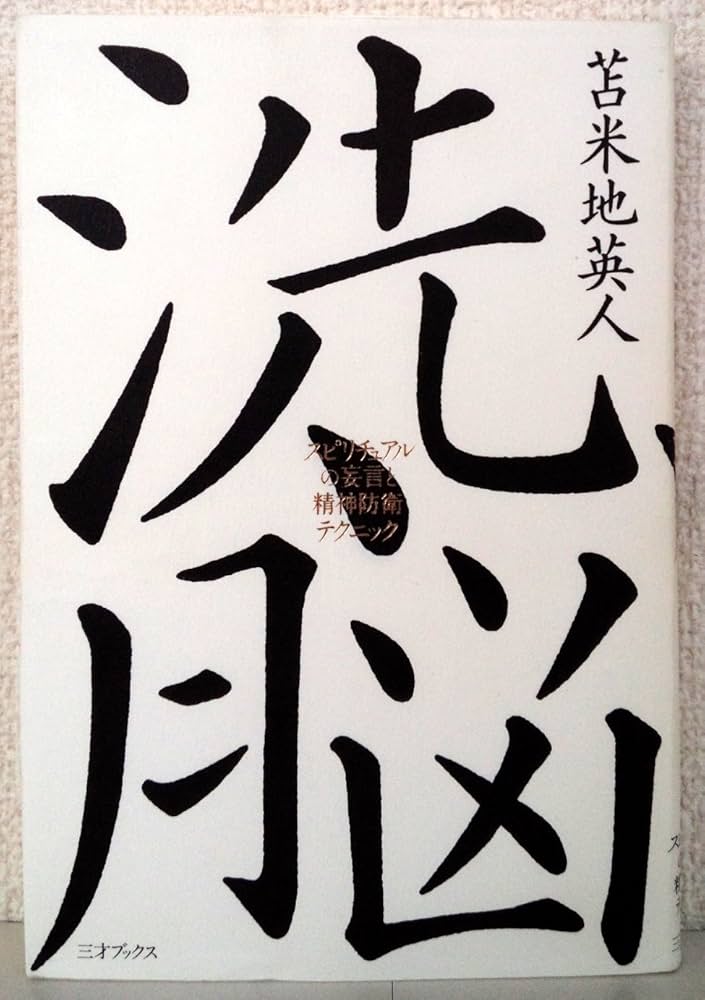 苫米地英人
洗
脳
スピリチュアル
の妄言と
精神防衛
テクニック
三才ブックス